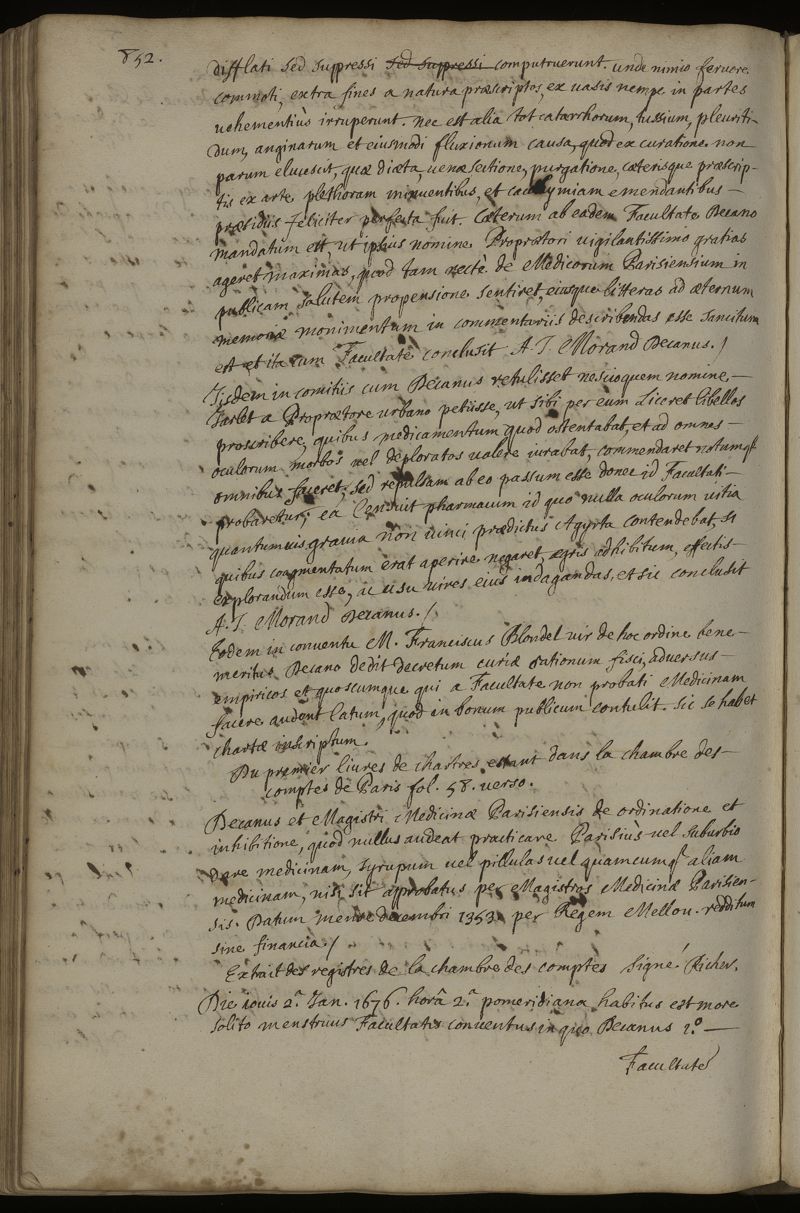 852.
difflati sed suppressi sed suppressi computruerunt. unde nimio fervore
commoti, extra fines a natura præscriptos, ex vasis nempe in partes
vehementiùs irruperunt. nec est alia tot catarrhorum, tussium, pleuriti-
dum, anginarum et eiusmodi fluxionum causa, quod ex curatione non
parum elucescit, quæ diæta venæ sectione, purgatione, cæterisque præscrip-
tis ex arte plethoram minuentibus, et cacochymiam emendantibus -
præsidiis feliciter perfecta fuit. Cæterum ab eadem Facultate Decano
mandatum est, ut ipsius nomine Proprætori vigilantissimo gratias
ageret maximas, quod tam rectè de Medicorum Parisiensium in
publicam salutem propensione sentiret, eiusque litteras ad æternum
memoriæ monimentum in commentariis describendas esse sancitum
est et ita cum Facultate conclusit A. J. Morand Decanus. /
Jisdem in comitiis cum Decanus retulisset nescio quem nomine -
Jarlet a Proprætore urbano petiisse, ut sibi per eum liceret libellos
proscribere, quibus medicamentum quod ostentabat, et ad omnes -
oculorum morbos vel deploratos valere iurabat, commendaret notumq3
omnibus faceret, sed repulsam ab eo passum esse donec id Facultati -
probaretur, ea censuit pharmacum id quo nulla oculorum vitia
quantumvis gravia non vinci prædictus Agyrta contendebat, si
quibus coagmentatum erat aperire negaret, ægris adhibitum, effectis -
explorandum esse, ac usu vires eius indagandas, et sic conclusit
A. J. Morand Decanus. /
Eodem in conventu M. Franciscus Blondel vir de hoc ordine bene -
meritus Decano dedit decretum curiæ rationum fisci, adversus -
empiricos et quoscumque qui a Facultate non probati Medicinam
facere audent latum, quod in bonum publicum contulit. sic se habet
chartæ inscriptum.
Du premier livres de chartres estant dans la chambre des -
comptes de Paris fol. 58. verso.
Decanus et Magistri Medicinæ Parisiensis de ordinatione et
inhibitione, quod nullus audeat practicare Parisiùs vel suburbio
dare medicinam, syrupum vel pillulas vel quamcumq3 aliam
medicinam, nisi sit approbatus per Magistros Medicinæ Parisien-
sis. Datum mense decembri 1353. per Regem Mellou. redditum
sine financia. /
Extrait des registres de la chambre des comptes signé Richer.
Die iovis 2.ª Jan. 1676. horâ 2.ª pomeridiana habitus est more
solito menstruus Facultatis conventus in quo Decanus 1.º —
Facultate